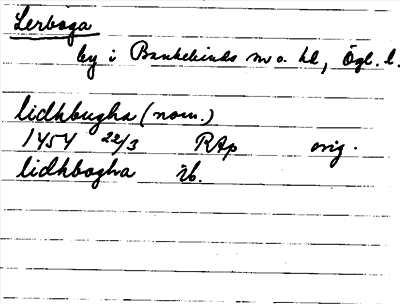 Lerboga
by i Bankekinds sn o. hd, Ögl. l.
lidhbugha (nom.)
1454 22/3 RAp orig.
lidhbogha ib.